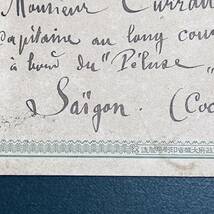 Monsieur Curran
Capitaine au long cour
à bord du "Péluse"
à Saïgon. (Coc